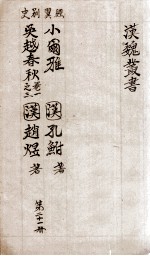 漢魏叢書
經翼別史
小爾雅 漢 孔鮒 著
吳越春秋 卷一之三 漢 趙煜 著
第二十一冊